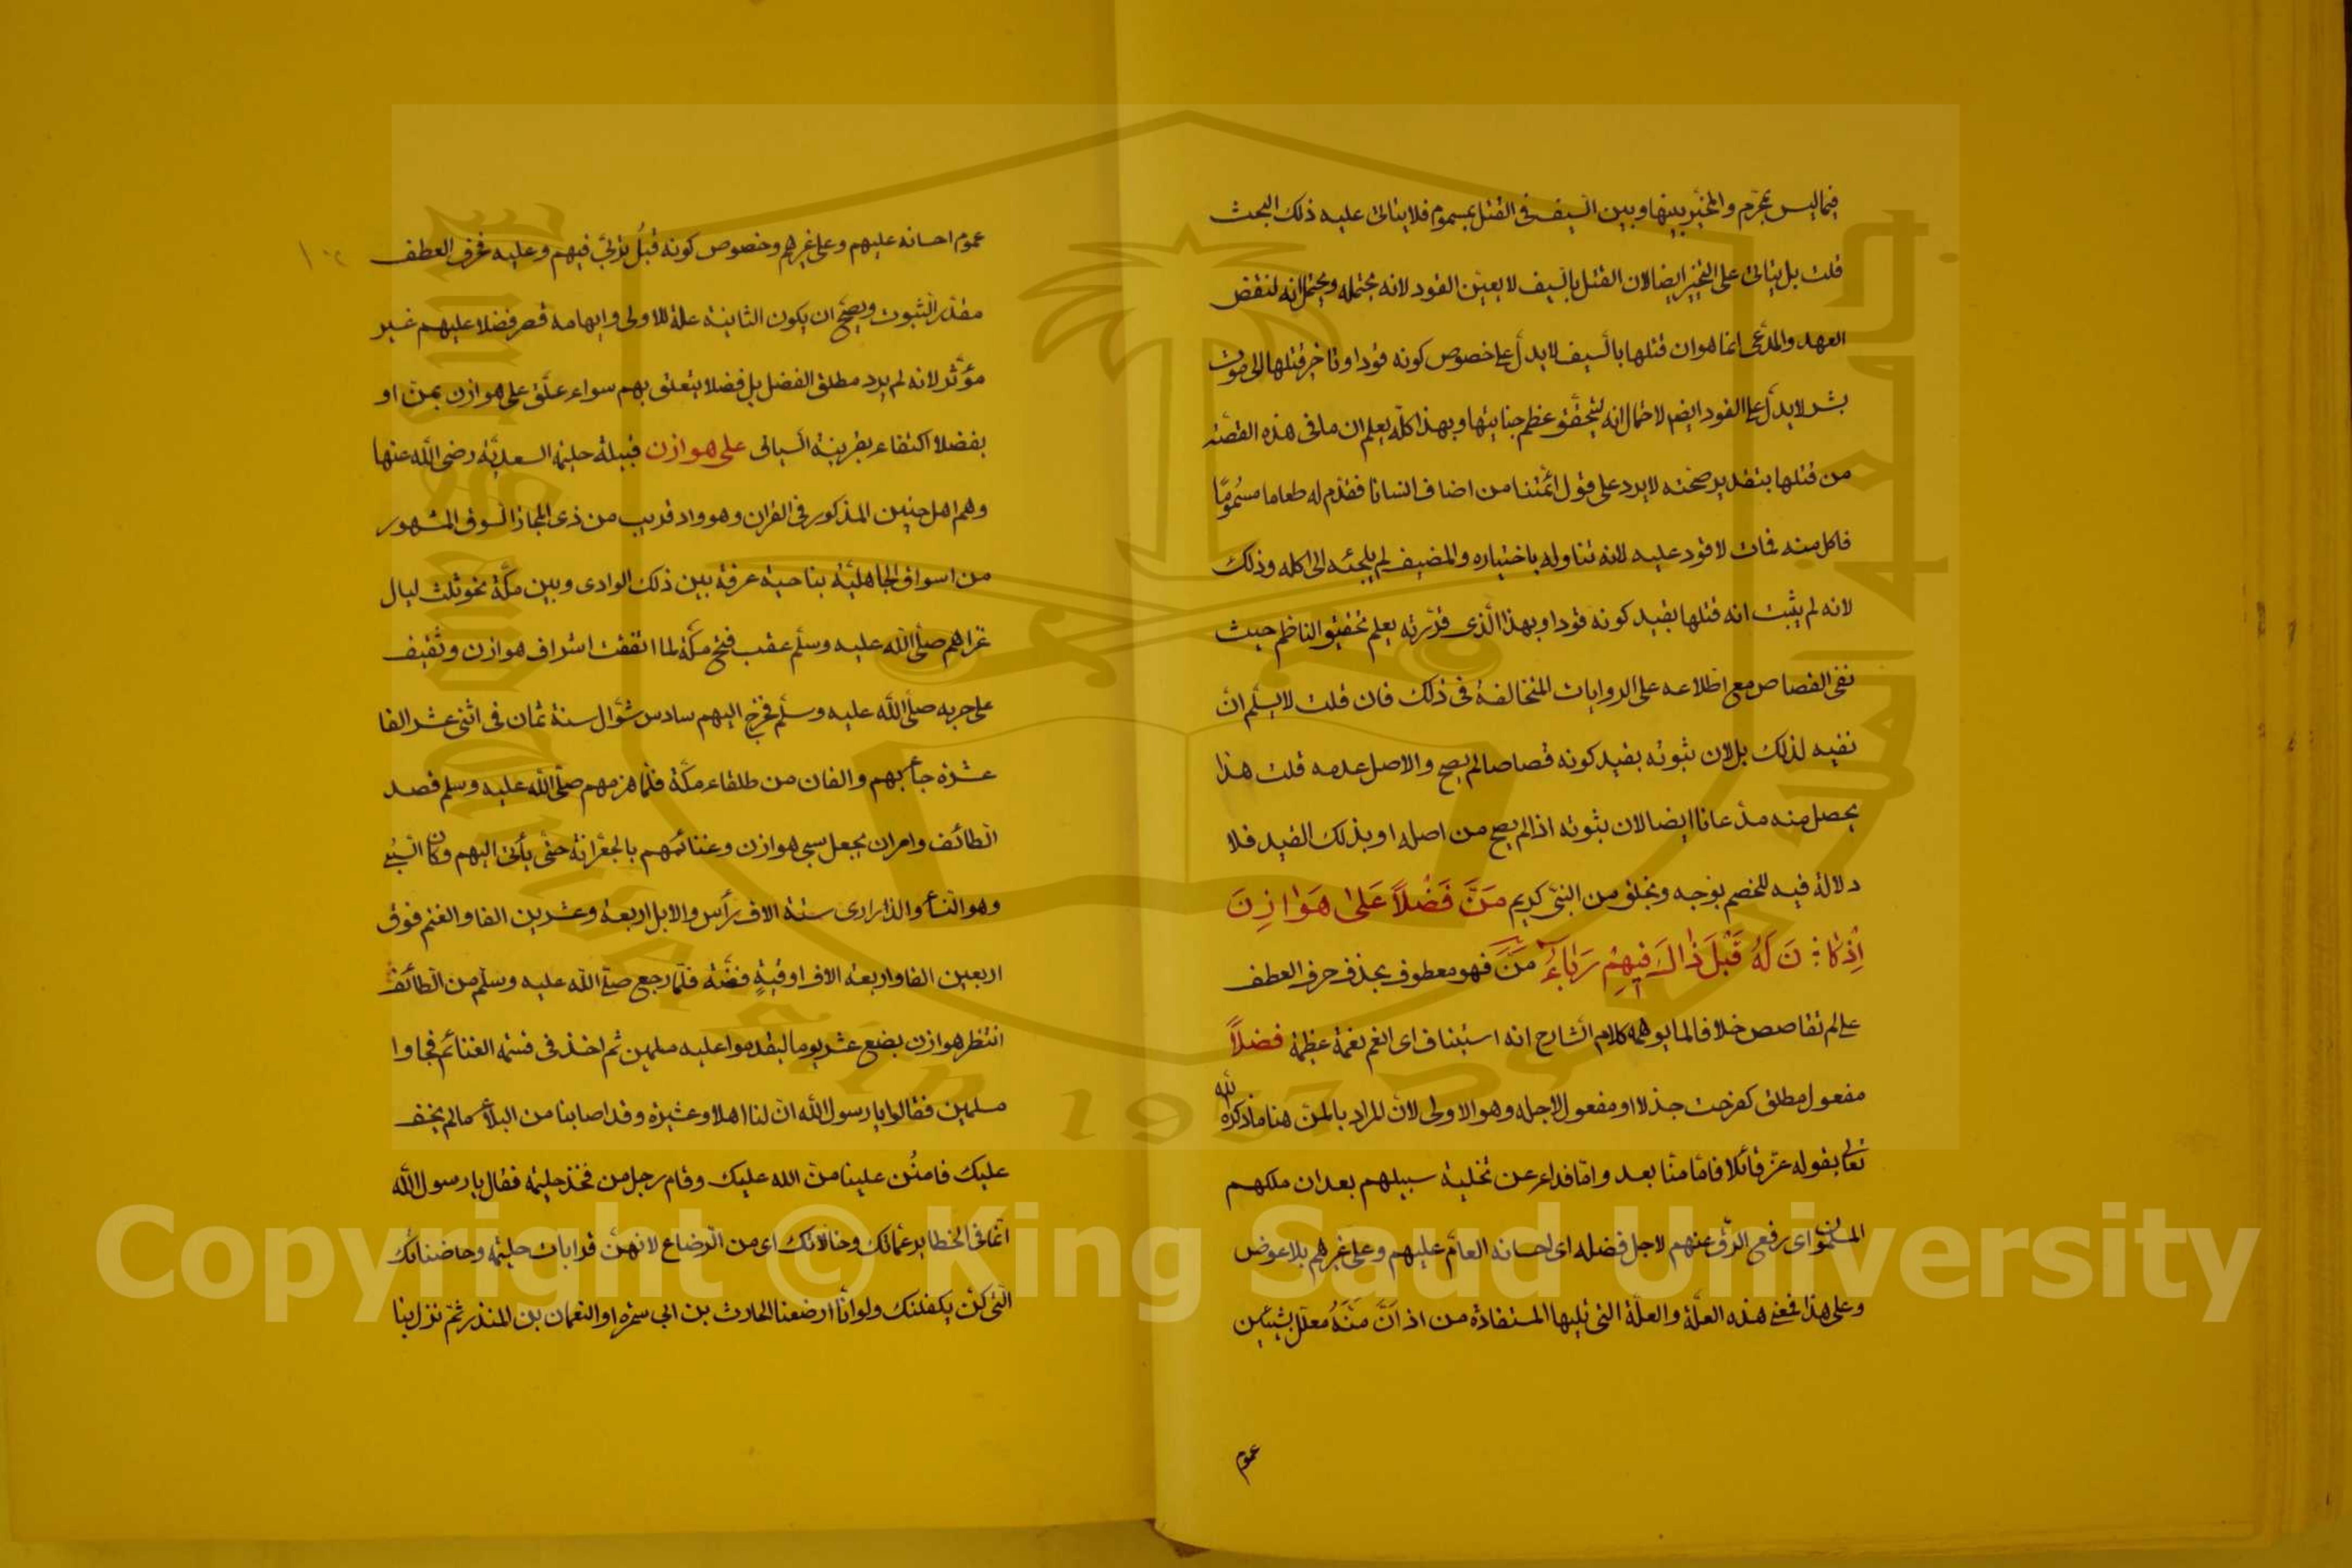 فيما ليس بمحرم والمخير بينها وبين السيف في القتل بمسموم فلا يتاتى عليه ذلك البحث
قلت بل يتاتى على التخيير ايضا لان القتل بالسيف لا يعين القود لانه يحتمله ويحتمل انه لنقض
العهد والمدعى انما هو ان قتلها بالسيف لا يدل على خصوص كونه قودا وتاخير قتلها الى موت
بشر لا يدل على القود ايضا لاحتمال انه ليتحقق عظم جنايتها وبهذا كله يعلم ان ما في هذه القصة
من قتلها بتقدير صحته لا يرد على قول ائمتنا من اضاف انسانا فقدم له طعاما مسموما
فاكل منه فمات لا قود عليه لانه تناوله باختياره والمضيف لم يلجئه الى اكله وذلك
لانه لم يثبت انه قتلها بقيد كونه قودا وبهذا الذي قررته يعلم تحقيق الناظم حيث
نفى القصاص مع اطلاعه على الروايات المتخالفة في ذلك فان قلت لا يسلم ان
نفيه لذلك بل لان ثبوته بقيد كونه قصاصا لم يصح والاصل عدمه قلت هذا
يحصل منه مدعانا ايضا لان ثبوته اذا لم يصح من اصله او بذلك القيد فلا
دلالة فيه للخصم بوجه وبخلق من النبي كريم مَنَّ فَضْلاً عَلىٰ هَوَازِنَ
اِذْ كَانَ لَهُ قَبْلَ ذٰالَكَ فِيهِمْ رَبَاءُ مَنَّ فهو معطوف بحذف حرف العطف
على لم تقاصص خلافا لما يوهمه كلام الشارح انه استيناف اى انعم نعمة عظيمة فضلاً
مفعول مطلق كفرحت جذلا او مفعول لاجله وهو الاولى لان المراد بالمن هنا ما ذكره الله
تعالى بقوله عز قائلا فاما منا بعد واما فداء عن تخلية سبيلهم بعد ان ملكهم
المسلمون اى رفع الرق عنهم لاجل فضله اى احسانه العام عليهم وعلى غيرهم بلا عوض
وعلى هذا فمعنى هذه العلة والعلة التى تليها المستفادة من اذ اَنَّ مَنَّهُ معلل بشيئين
عموم
عموم احسانه عليهم وعلى غيرهم وخصوص كونه قبل تربى فيهم وعليه فحرف العطف
مقدر الثبوت ويصح ان يكون الثانية علة للاولى وايهامه قصر فضلا عليهم غير
مؤثر لانه لم يرد مطلق الفضل بل فضلا يتعلق بهم سواء علق على هوازن بمن او
بفضلا اكتفاء بقرينة السياق على هوازن قبيلة حليمة السعدية رضى الله عنها
وهم اهل حنين المذكور في القران وهو واد قريب من ذى المجاز السوق المشهور
من اسواق الجاهلية بناحية عرفة بين ذلك الوادى وبين مكة نحو ثلث ليال
غزاهم صلى الله عليه وسلم عقب فتح مكة لما اتفقت اشراف هوازن وثقيف
على حربه صلى الله عليه وسلم فخرج اليهم سادس شوال سنة ثمان في اثنى عشر الفا
عشرة جاء بهم والفان من طلقاء مكة فلما هزمهم صلى الله عليه وسلم قصد
الطائف وامر ان يجعل سبى هوازن وغنائمهم بالجعرانة حتى يأتى اليهم وكان السبى
وهو النساء والذرارى ستة الاف رأس والابل اربعة وعشرين الفا والغنم فوق
اربعين الفا واربعة الاف اوقية فضة فلما رجع صلى الله عليه وسلم من الطائف
انتظر هوازن بضع عشر يوما ليقدموا عليه مسلمين ثم اخذ في قسمة الغنائم فجاوا
مسلمين فقالوا يا رسول الله ان لنا اهلا وعشيرة وقد اصابنا من البلاء ما لم يخف
عليك فامنُن علينا من الله عليك وقام رجل من فخذ حليمة فقال يا رسول الله
انما في الخطاير عماتك وخالاتك اى من الرضاع لانهن قرابات حليمة وحاضناتك
التى كن يكفلنك ولو انا ارضعنا الحارث بن ابي شمر او النعمان بن المنذر ثم نزل بنا
King Saud University
1957
Copyright © King Saud University